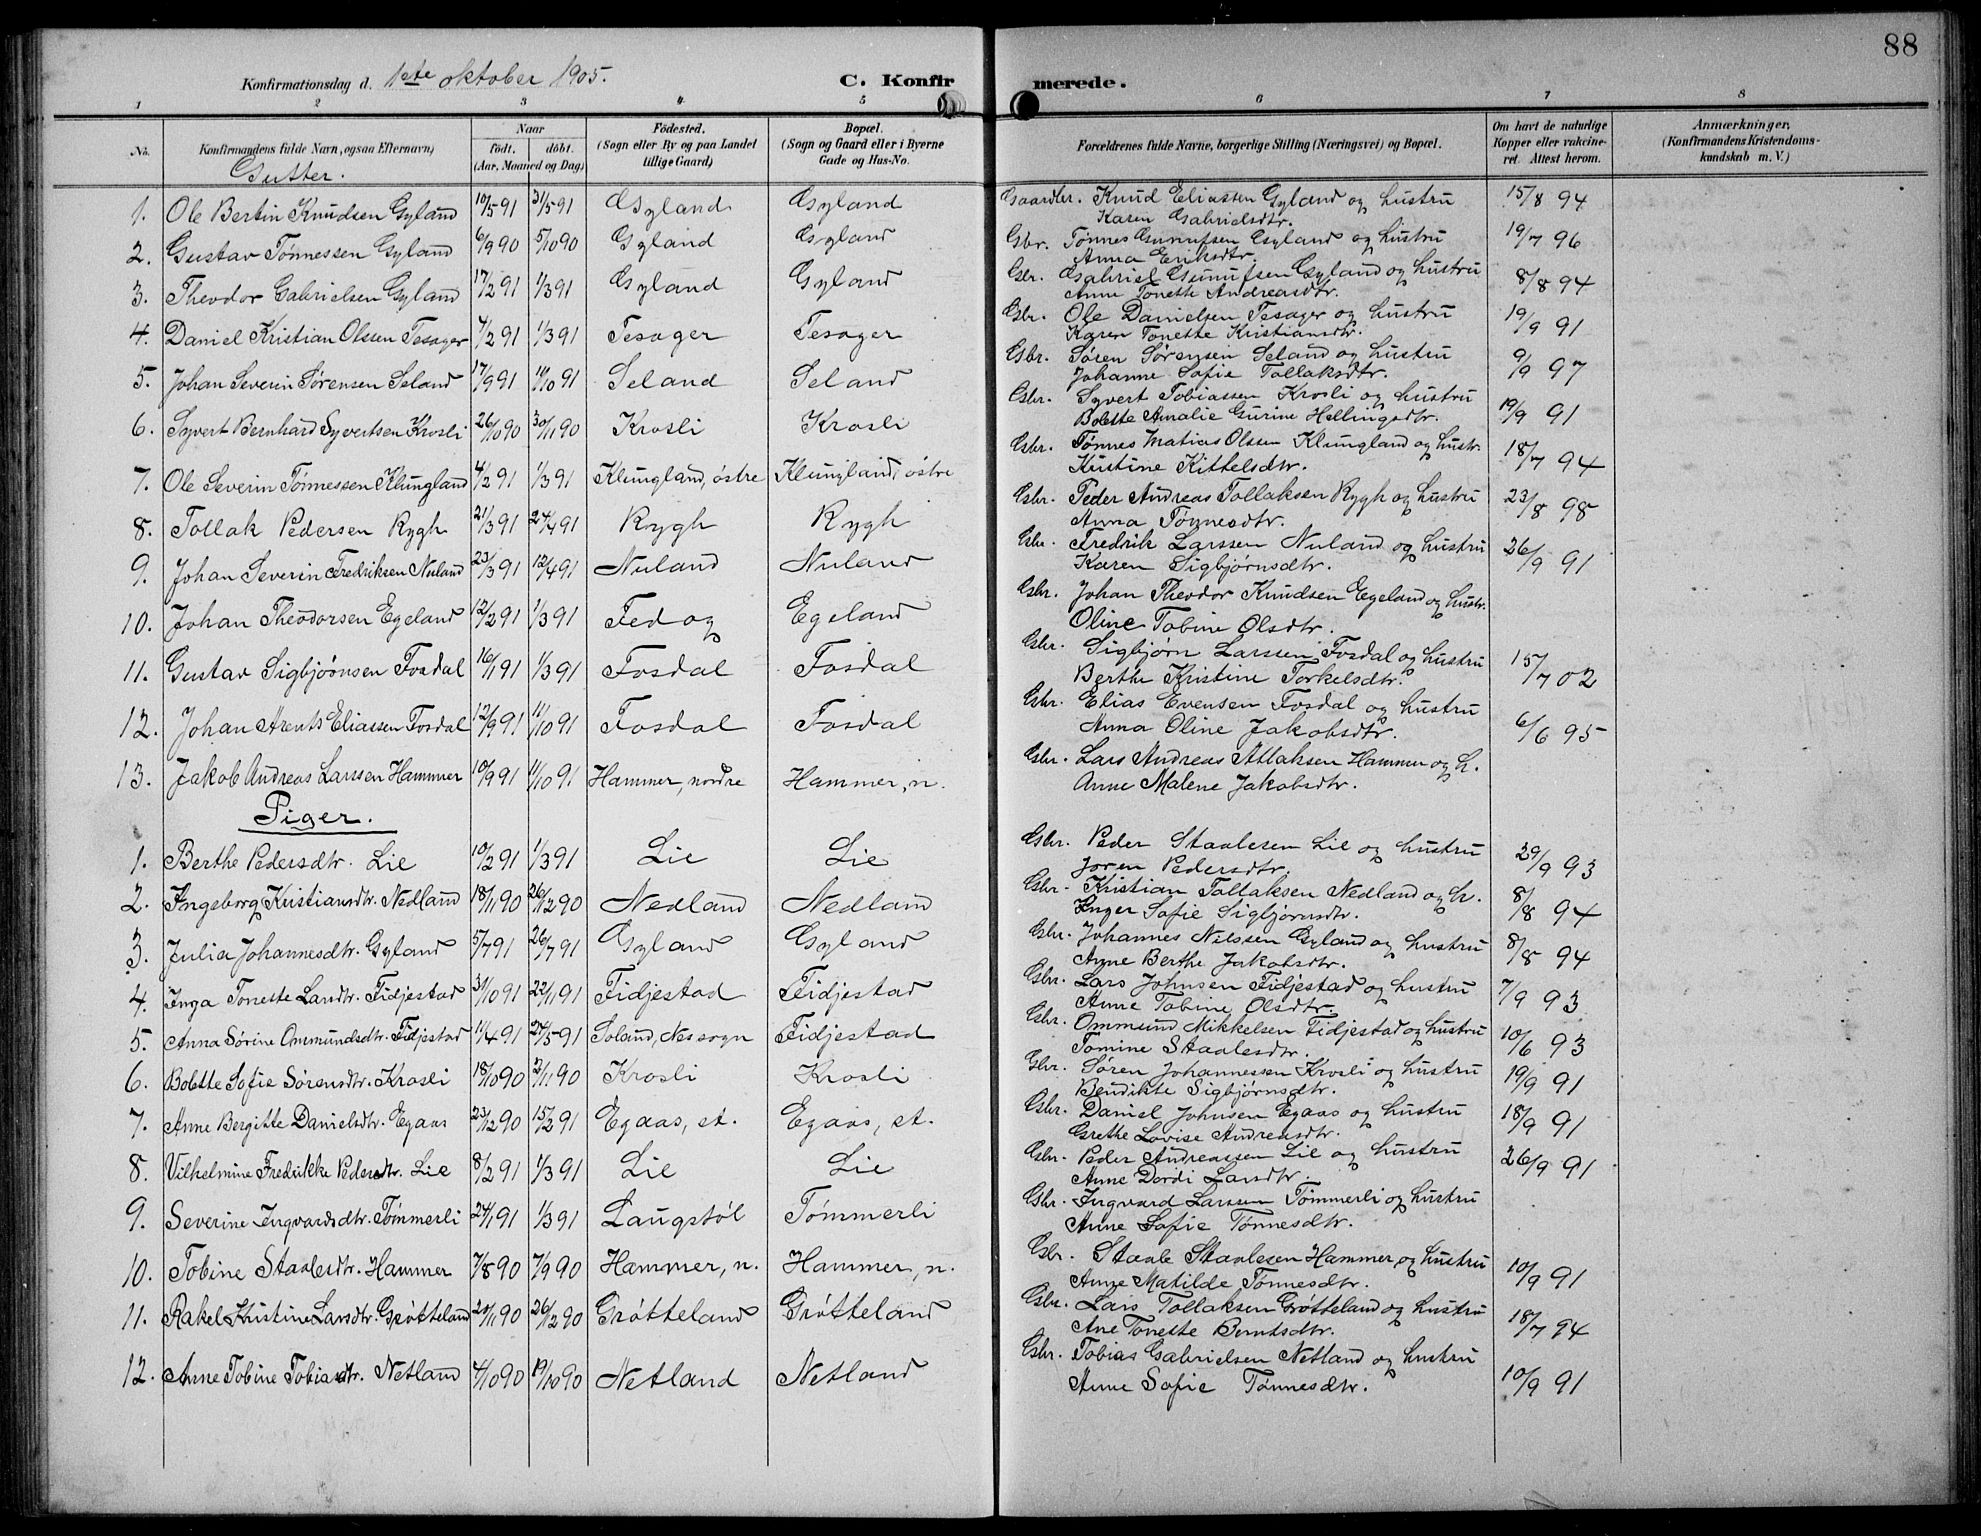 88
Konfirmationsdag d. 1ste oktober 1905. C. Konfirmerede.
1 2 3 4 5 6 7 8
No. Konfirmandens fulde Navn, ogsaa Efternavn) Naar født. døbt. (Aar, Maaned og Dag) Fødested. (Sogn eller By og paa Landet tillige Gaard) Bopæl. (Sogn og Gaard eller i Byerne Gade og Hus-No. Forældrenes fulde Navne, borgerlige Stilling (Næringsvei) og Bopæl. Om havt de naturlige Kopper eller vakcineret. Attest herom. Anmærkninger. (Konfirmandens Kristendomskundskab m. V.)
Gutter.
1. Ole Bertin Knudsen Gyland 10/5 91 31/5 91 Gyland Gyland Gaardbr. Knud Eliassen Gyland og hustru 15/8 94
Karen Gabrielsdtr.
2. Gustav Tønnessen Gyland 6/9 90 5/10 90 Gyland Gyland Gbr. Tønnes Gunufsen Gyland og hustru 19/7 96
Anna Eriksdtr.
3. Theodor Gabrielsen Gyland 17/2 91 1/3 91 Gyland Gyland Gbr. Gabriel Gunufsen Gyland og hustru 8/8 94
Anne Tonette Andreasdtr.
4. Daniel Kristian Olsen Tesager 4/2 91 1/3 91 Tesager Tesager Gbr. Ole Danielsen Tesager og hustru 19/9 91
Karen Tonette Kristiansdtr.
5. Johan Severin Sørensen Seland 17/9 91 11/10 91 Seland Seland Gbr. Søren Sørensen Seland og hustru 9/9 97
Johanne Sofie Tollaksdtr.
6. Syvert Bernhard Syvertsen Krosli 26/10 90 30/11 90 Krosli Krosli Gbr. Syvert Tobiassen Krosli og hustru 19/9 91
Bolette Amalie Gurine Hellingsdtr.
7. Ole Severin Tønnessen Klungland 4/2 91 1/3 91 Klungland, østre Klungland, østre Gbr. Tønnes Matias Olsen Klungland og hustr. 18/7 94
Kristine Kittelsdtr.
8. Tollak Pedersen Rygh 21/3 91 24/4 91 Rygh Rygh Gbr. Peder Andreas Tollaksen Rygh og hustru 23/8 98
Anna Tønnesdtr.
9. Johan Severin Fredriksen Nuland 23/3 91 12/4 91 Nuland Nuland Gbr. Fredrik Larssen Nuland og hustru 26/9 91
Karen Sigbjørnsdtr.
10. Johan Theodorsen Egeland 12/2 91 1/3 91 Fedog Egeland Gbr. Johan Theodor Knudsen Egeland og hustr.
Oline Tobine Olsdtr.
11. Gustav Sigbjørnsen Fosdal 16/1 91 1/3 91 Fosdal Fosdal Gbr. Sigbjørn Larssen Fosdal og hustru 15/7 02
Berthe Kristine Torkelsdtr.
12. Johan Arents Eliassen Fosdal 12/9 91 11/10 91 Fosdal Fosdal Gbr. Elias Evensen Fosdal og hustru 6/6 95
Anna Oline Jakobsdtr.
13. Jakob Andreas Larssen Hammer 10/9 91 11/10 91 Hammer, nordre Hammer, n. Gbr. Lars Andreas Atlaksen Hammer og h.
Anne Malene Jakobsdtr.
Piger.
1. Berthe Pedersdtr. Lie 10/2 91 1/3 91 Lie Lie Gbr. Peder Staalesen Lie og hustru 29/9 93
Joren Pedersdtr.
2. Ingeborg Kristiansdtr. Nedland 18/11 90 26/12 90 Nedland Nedland Gbr. Kristian Tollaksen Nedland og h. 8/8 94
Inger Sofie Sigbjørnsdtr.
3. Julia Johannesdtr. Gyland 5/7 91 26/7 91 Gyland Gyland Gbr. Johannes Nilssen Gyland og hustru 8/8 94
Anne Berthe Jakobsdtr.
4. Inga Tonette Larsdtr. Fidjestad 31/10 91 22/11 91 Fidjestad Fidjestad Gbr. Lars Johnsen Fidjestad og hustru 7/9 93
Anne Tobine Olsdtr.
5. Anna Sørine Ommundsdtr. Fidjestad 11/4 91 24/5 91 Soland, Nessogn Fidjestad Gbr. Ommund Mikkelsen Fidjestad og hustru 10/6 93
Tomine Staalesdtr.
6. Bolette Sofie Sørensdtr. Krosli 18/10 90 2/11 90 Krosli Krosli Gbr. Søren Johannessen Krosli og hustru 19/9 91
Bendikte Sigbjørnsdtr.
7. Anne Bergitte Danielsdtr. Egaas 23/12 90 15/2 91 Egaas, st. Egaas, st. Gbr. Daniel Johnsen Egaas og hustru 18/9 91
Grethe Lovise Andreasdtr.
8. Vilhelmine Fredrikke Pedersdtr. Lie 8/2 91 1/3 91 Lie Lie Gbr. Peder Andreassen Lie og hustru 26/9 91
Anne Dordi Larsdtr.
9. Severine Ingvardsdtr. Tømmerli 24/1 91 1/3 91 Laugstøl Tømmerli Gbr. Ingvard Larssen Tømmerli og hustru
Anne Sofie Tønnesdtr.
10. Tobine Staalesdtr. Hammer 7/8 90 7/9 90 Hammer, n. Hammer, n. Gbr. Staale Staalesen Hammer og hustru 10/9 91
Anne Matilde Tønnesdtr.
11. Rakel Kristine Larsdtr. Grøtteland 20/11 90 26/12 90 Grøtteland Grøtteland Gbr. Lars Tollaksen Grøtteland og hustru 18/7 94
Ane Tonette Berntsdtr.
12. Anne Tobine Tobiasdtr. Netland 4/10 90 19/10 90 Netland Netland Gbr. Tobias Gabrielsen Netland og hustru 10/9 91
Anne Sofie Tønnesdtr.